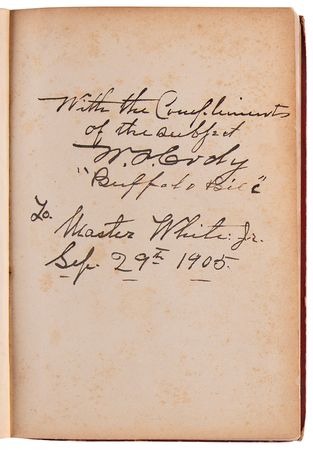 With the Compliments
of the subject
W. F. Cody
"Buffalo Bill"
To
Master White. Jr.
Sep. 29th 1905.